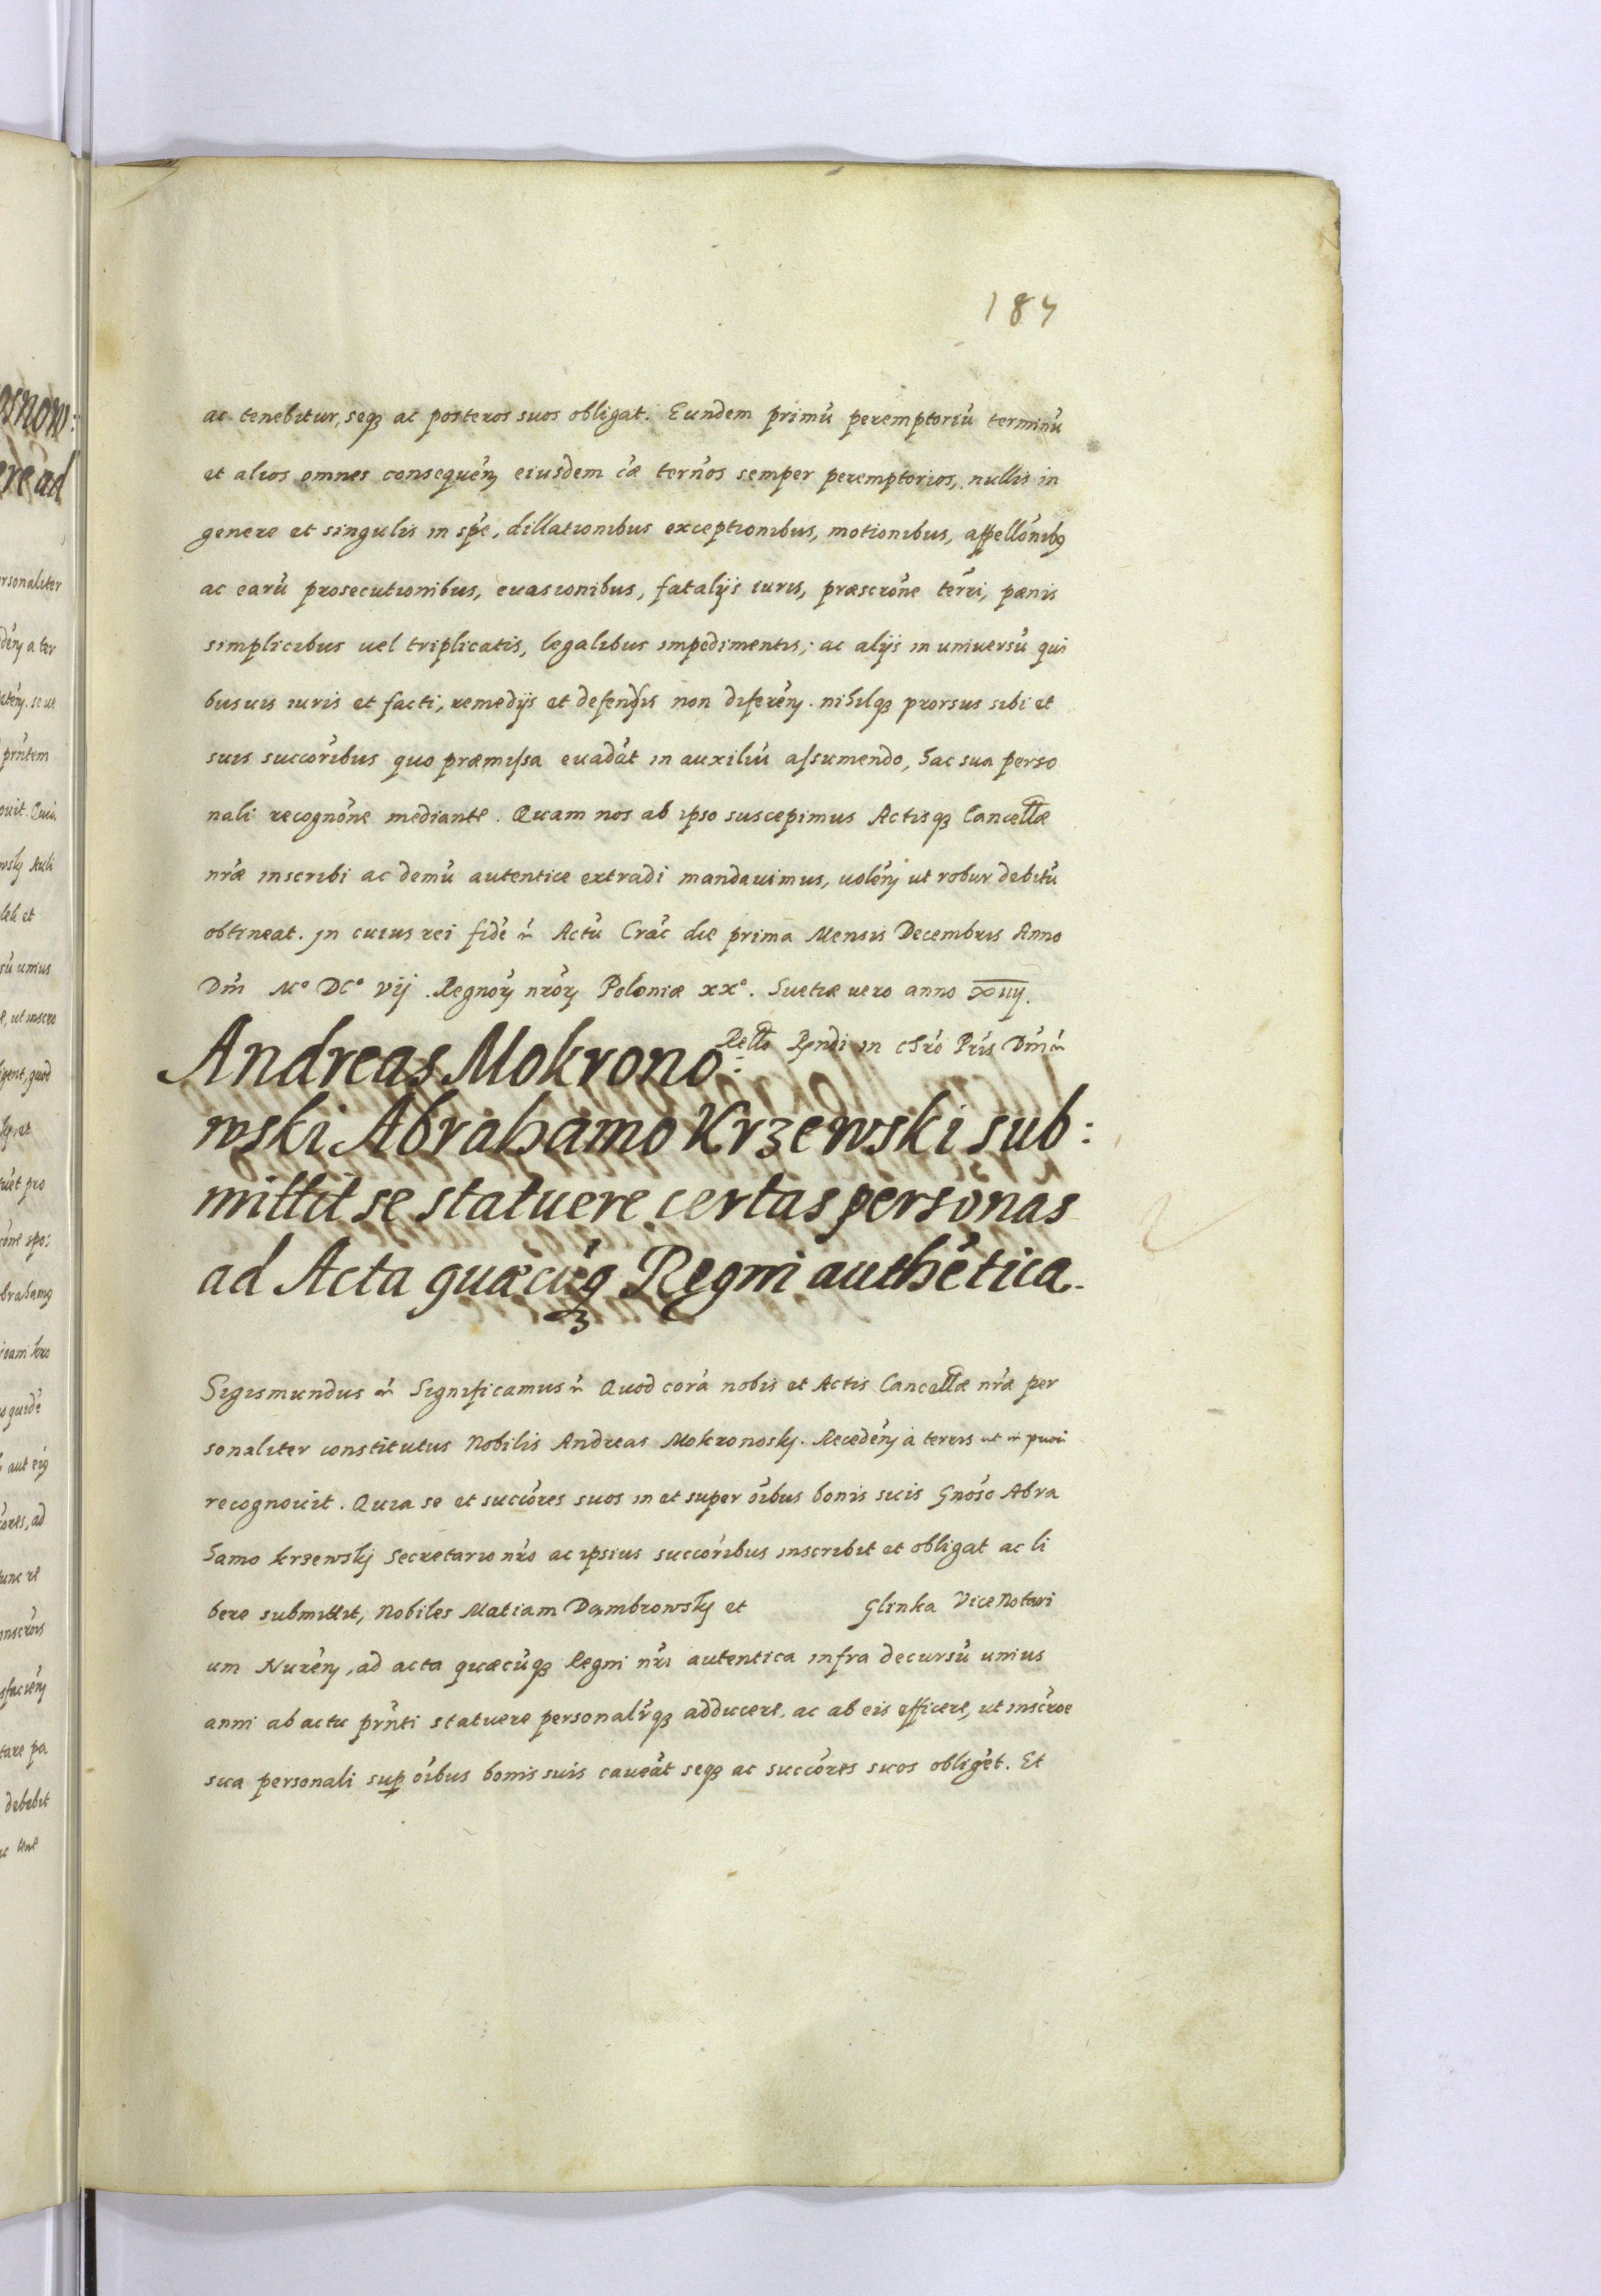 187
ac tenebitur, seqȝ ac posteros suos obligat. Eundem primũ peremptoriũ terminũ
et alios omnes consequeñ eiusdem cãe terños semper peremptorios, nullis in
genere et singulis in spẽ, dillationibus exceptionibus, motionibus, appellõnibȝ
ac earũ prosecutionibus, euasionibus, fatalijs iuris, præscrõne terñi, pænis
simplicibus uel triplicatis, legalibus impedimentis, ac alijs in uniuersũ qui
busuis iuris et facti, remedijs et defensis non difereñ. nihilqȝ prorsus sibi et
suis succõribus quo præmissa euadãt in auxiliũ assumendo, hac sua perso
nali recognõne mediante. Quam nos ab ipso suscepimus Actisqȝ Cancellæ
nr̃æ inscribi ac demũ autentice extradi mandauimus, uoleñ ut robur debitũ
obtineat. In cuius rei fidẽ Actũ Crac̃ die prima Mensis Decembris Anno
Dñi Mº DCº Vij. Regnoꝝ nr̃oꝝ Poloniæ xxº. Suetiæ uero anno xiiij.
Rell̃o Rn̄di in chrõ Pr̃is Dñi
Andreas Mokrono:
wski Abrahamo Krzewski sub:
mittit se statuere certas personas
ad Acta quæcũqȝ Regni authẽtica.
Sigismundus Significamus Quod corã nobis et Actis Cancellæ nr̃æ per
sonaliter constitutus Nobilis Andreas Mokronosky. Recedeñ a terris ut in
recognouit. Quia se et succõres suos in et super õibus bonis suis Gnõso Abra
hamo Krzewsky Secretario nr̃o ac ipsius succõribus inscribit et obligat ac li
bere submittit, Nobiles Matiam Dambrowsky et Glinka Vice Notari
um Nureñ, ad acta quæcũqȝ Regni nr̃i autentica infra decursũ unius
anni ab actu prñti statuere personalr̃qȝ adducere, ac ab eis efficere, ut inscrõe
sua personali sup̱ õibus bonis suis caueãt seqȝ ac succõres suos obligẽt. Et